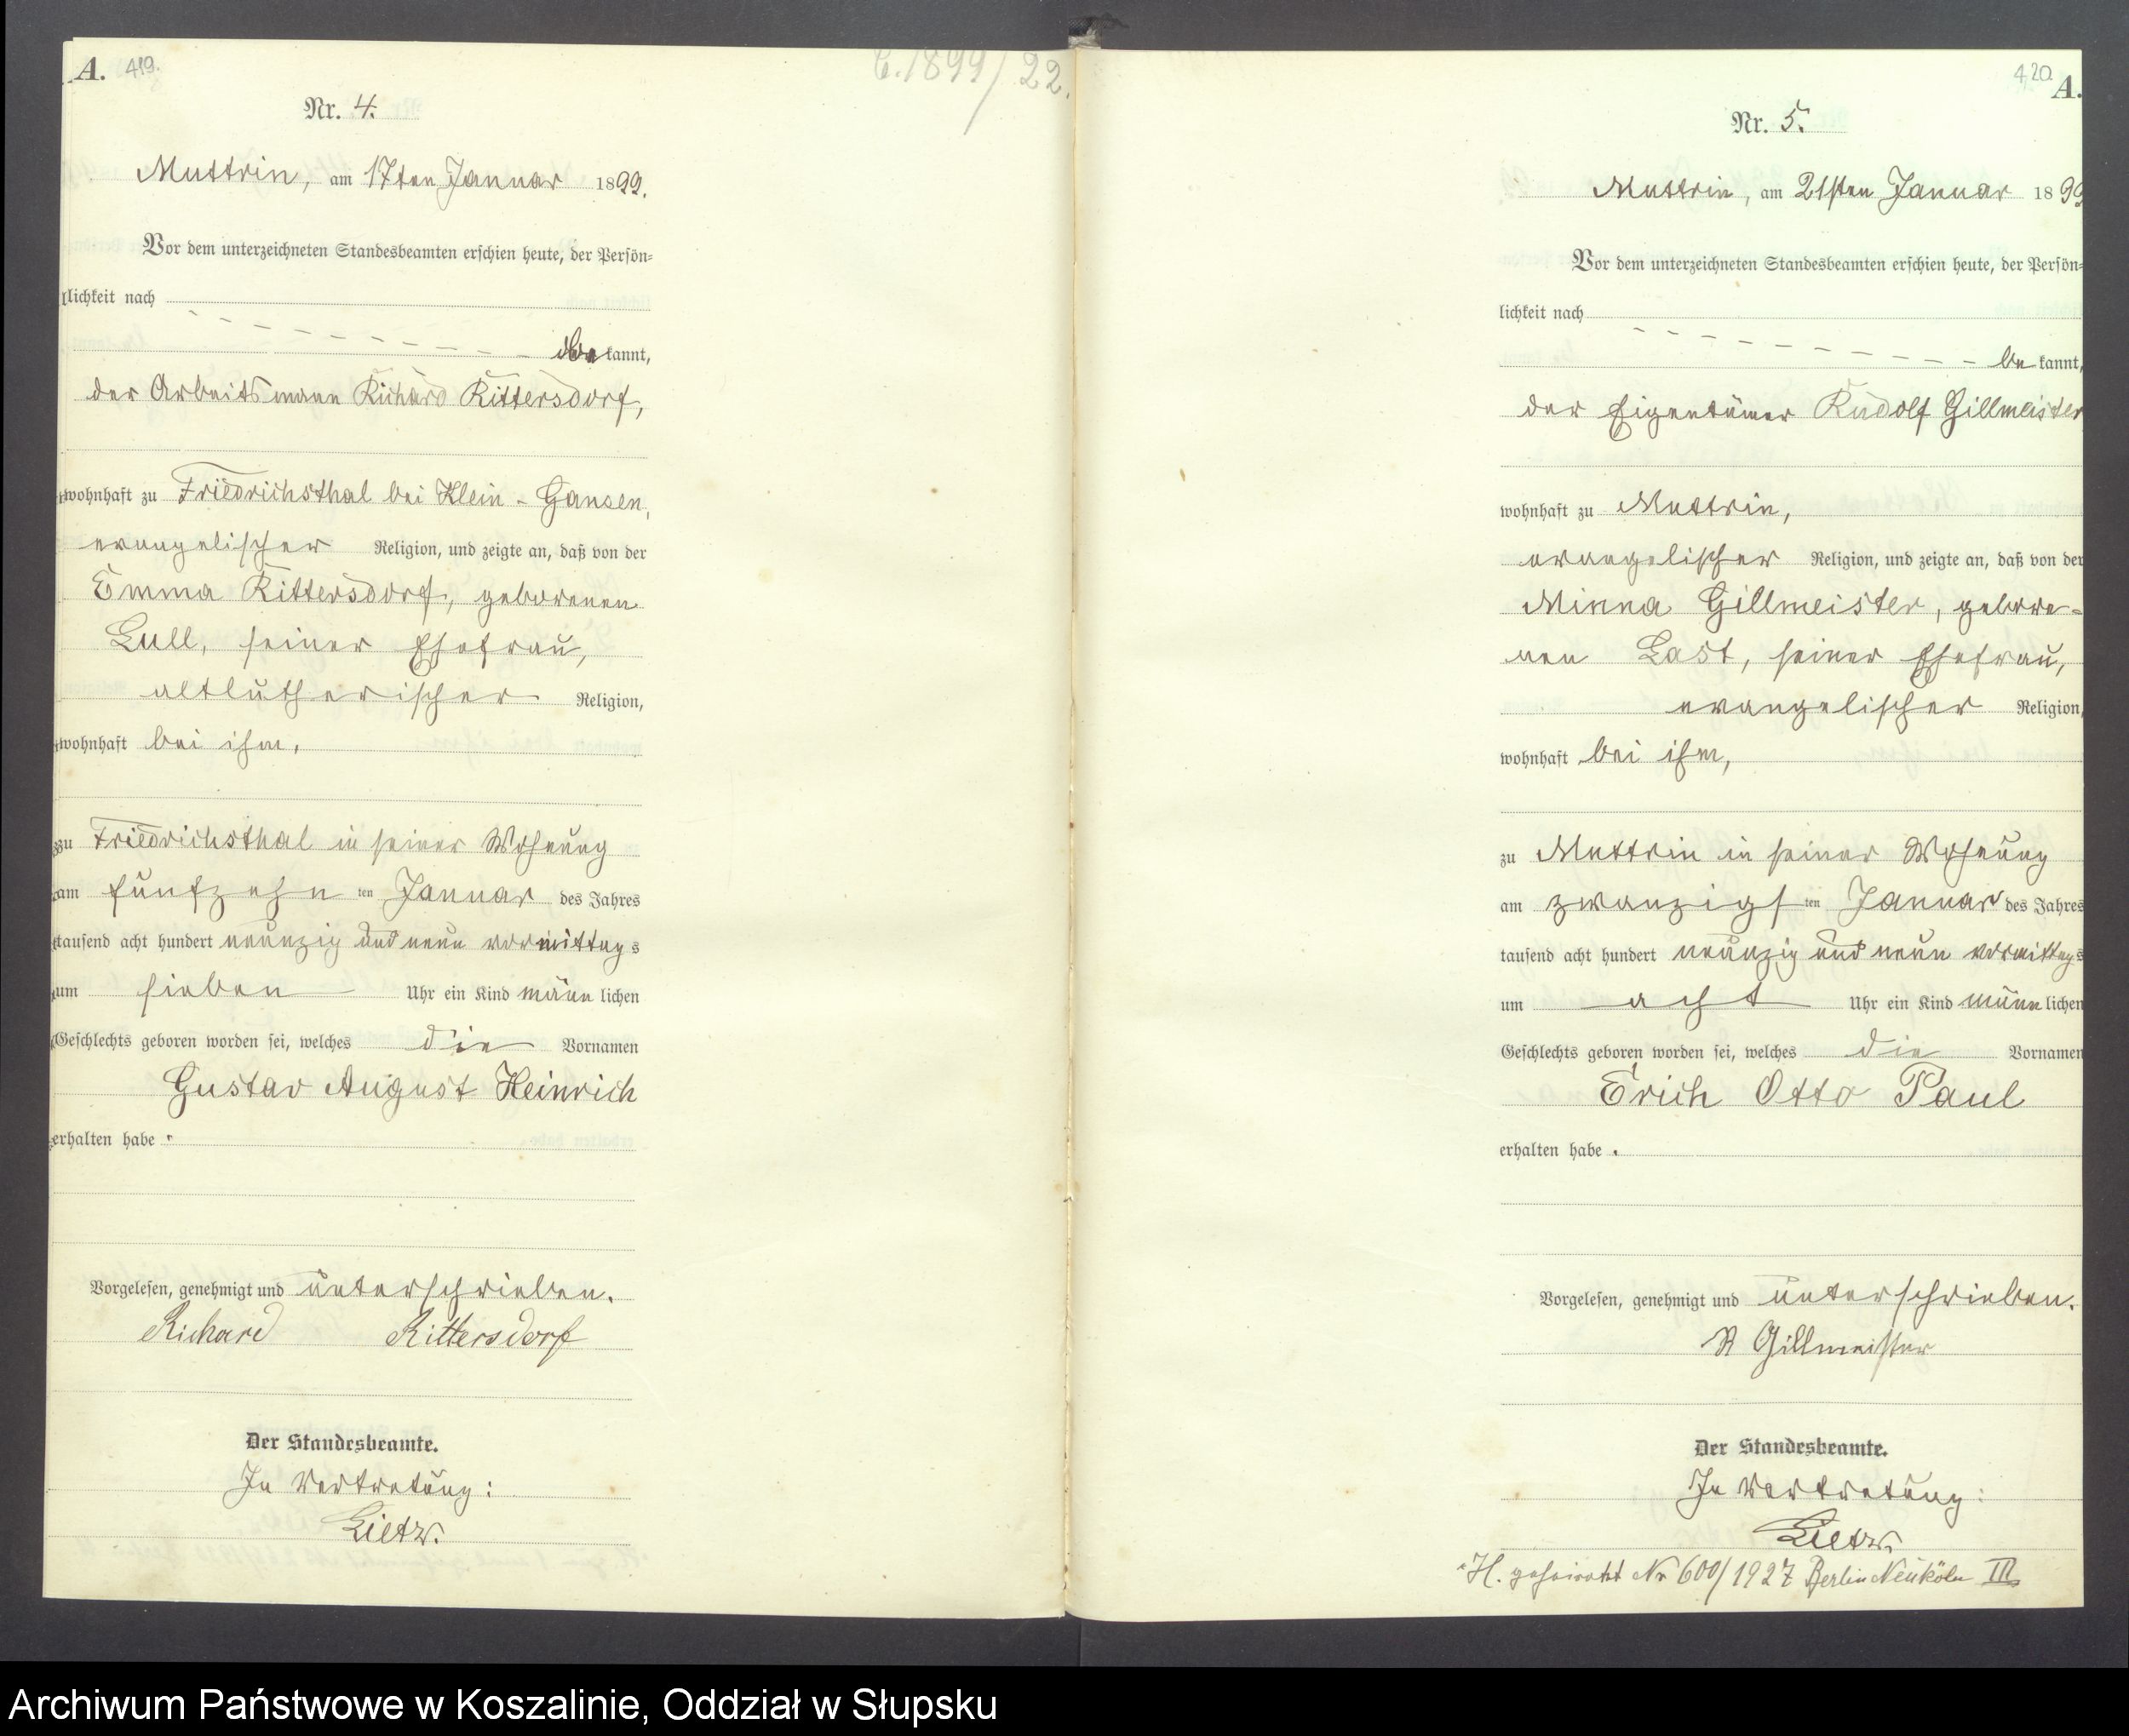 A. 419.
C. 1899/22.
Nr. 4.
Muttrin, am 17ten Januar 1899.
Vor dem unterzeichneten Standesbeamten erschien heute, der Persön-
lichkeit nach
be kannt,
der Arbeitsmann Richard Rittersdorf,
wohnhaft zu Friedrichsthal bei Klein-Gansen,
evangelischer Religion, und zeigte an, daß von der
Emma Rittersdorf, geborenen
Lull, seiner Ehefrau,
altlutherischer Religion,
wohnhaft bei ihm,
zu Friedrichsthal in seiner Wohnung
am fünfzehn ten Januar des Jahres
tausend acht hundert neunzig und neun vormittags
um sieben Uhr ein Kind männlichen
Geschlechts geboren worden sei, welches die Vornamen
Gustav August Heinrich
erhalten habe.
Vorgelesen, genehmigt und unterschrieben.
Richard Rittersdorf
Der Standesbeamte.
In Vertretung:
Lietz.
420 A.
Nr. 5.
Muttrin, am 21sten Januar 1899
Vor dem unterzeichneten Standesbeamten erschien heute, der Persön-
lichkeit nach
be kannt,
der Eigentümer Rudolf Gillmeister
wohnhaft zu Muttrin,
evangelischer Religion, und zeigte an, daß von der
Minna Gillmeister, gebore-
nen Last, seiner Ehefrau,
evangelischer Religion,
wohnhaft bei ihm,
zu Muttrin in seiner Wohnung
am zwanzigsten Januar des Jahres
tausend acht hundert neunzig und neun vormittags
um acht Uhr ein Kind männlichen
Geschlechts geboren worden sei, welches die Vornamen
Erich Otto Paul
erhalten habe.
Vorgelesen, genehmigt und unterschrieben.
R Gillmeister
Der Standesbeamte.
In Vertretung:
Lietz.
H. geheiratet Nr 600/1927 Berlin Neuköln III
Archiwum Państwowe w Koszalinie, Oddział w Słupsku